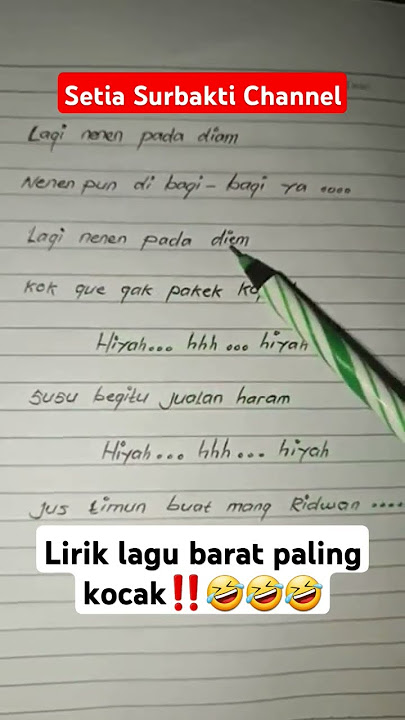 Setia Surbakti Channel
Lagi nenen pada diam
Nenen pun di bagi-bagi ya ....
Lagi nenen pada diem
kok gue gak pakek
Hiyah... hhh ... hiyah
susu begitu jualan haram
Hiyah... hhh... hiyah
Jus timun buat mang Ridwan ....
Lirik lagu barat paling
kocak‼️🤣🤣🤣